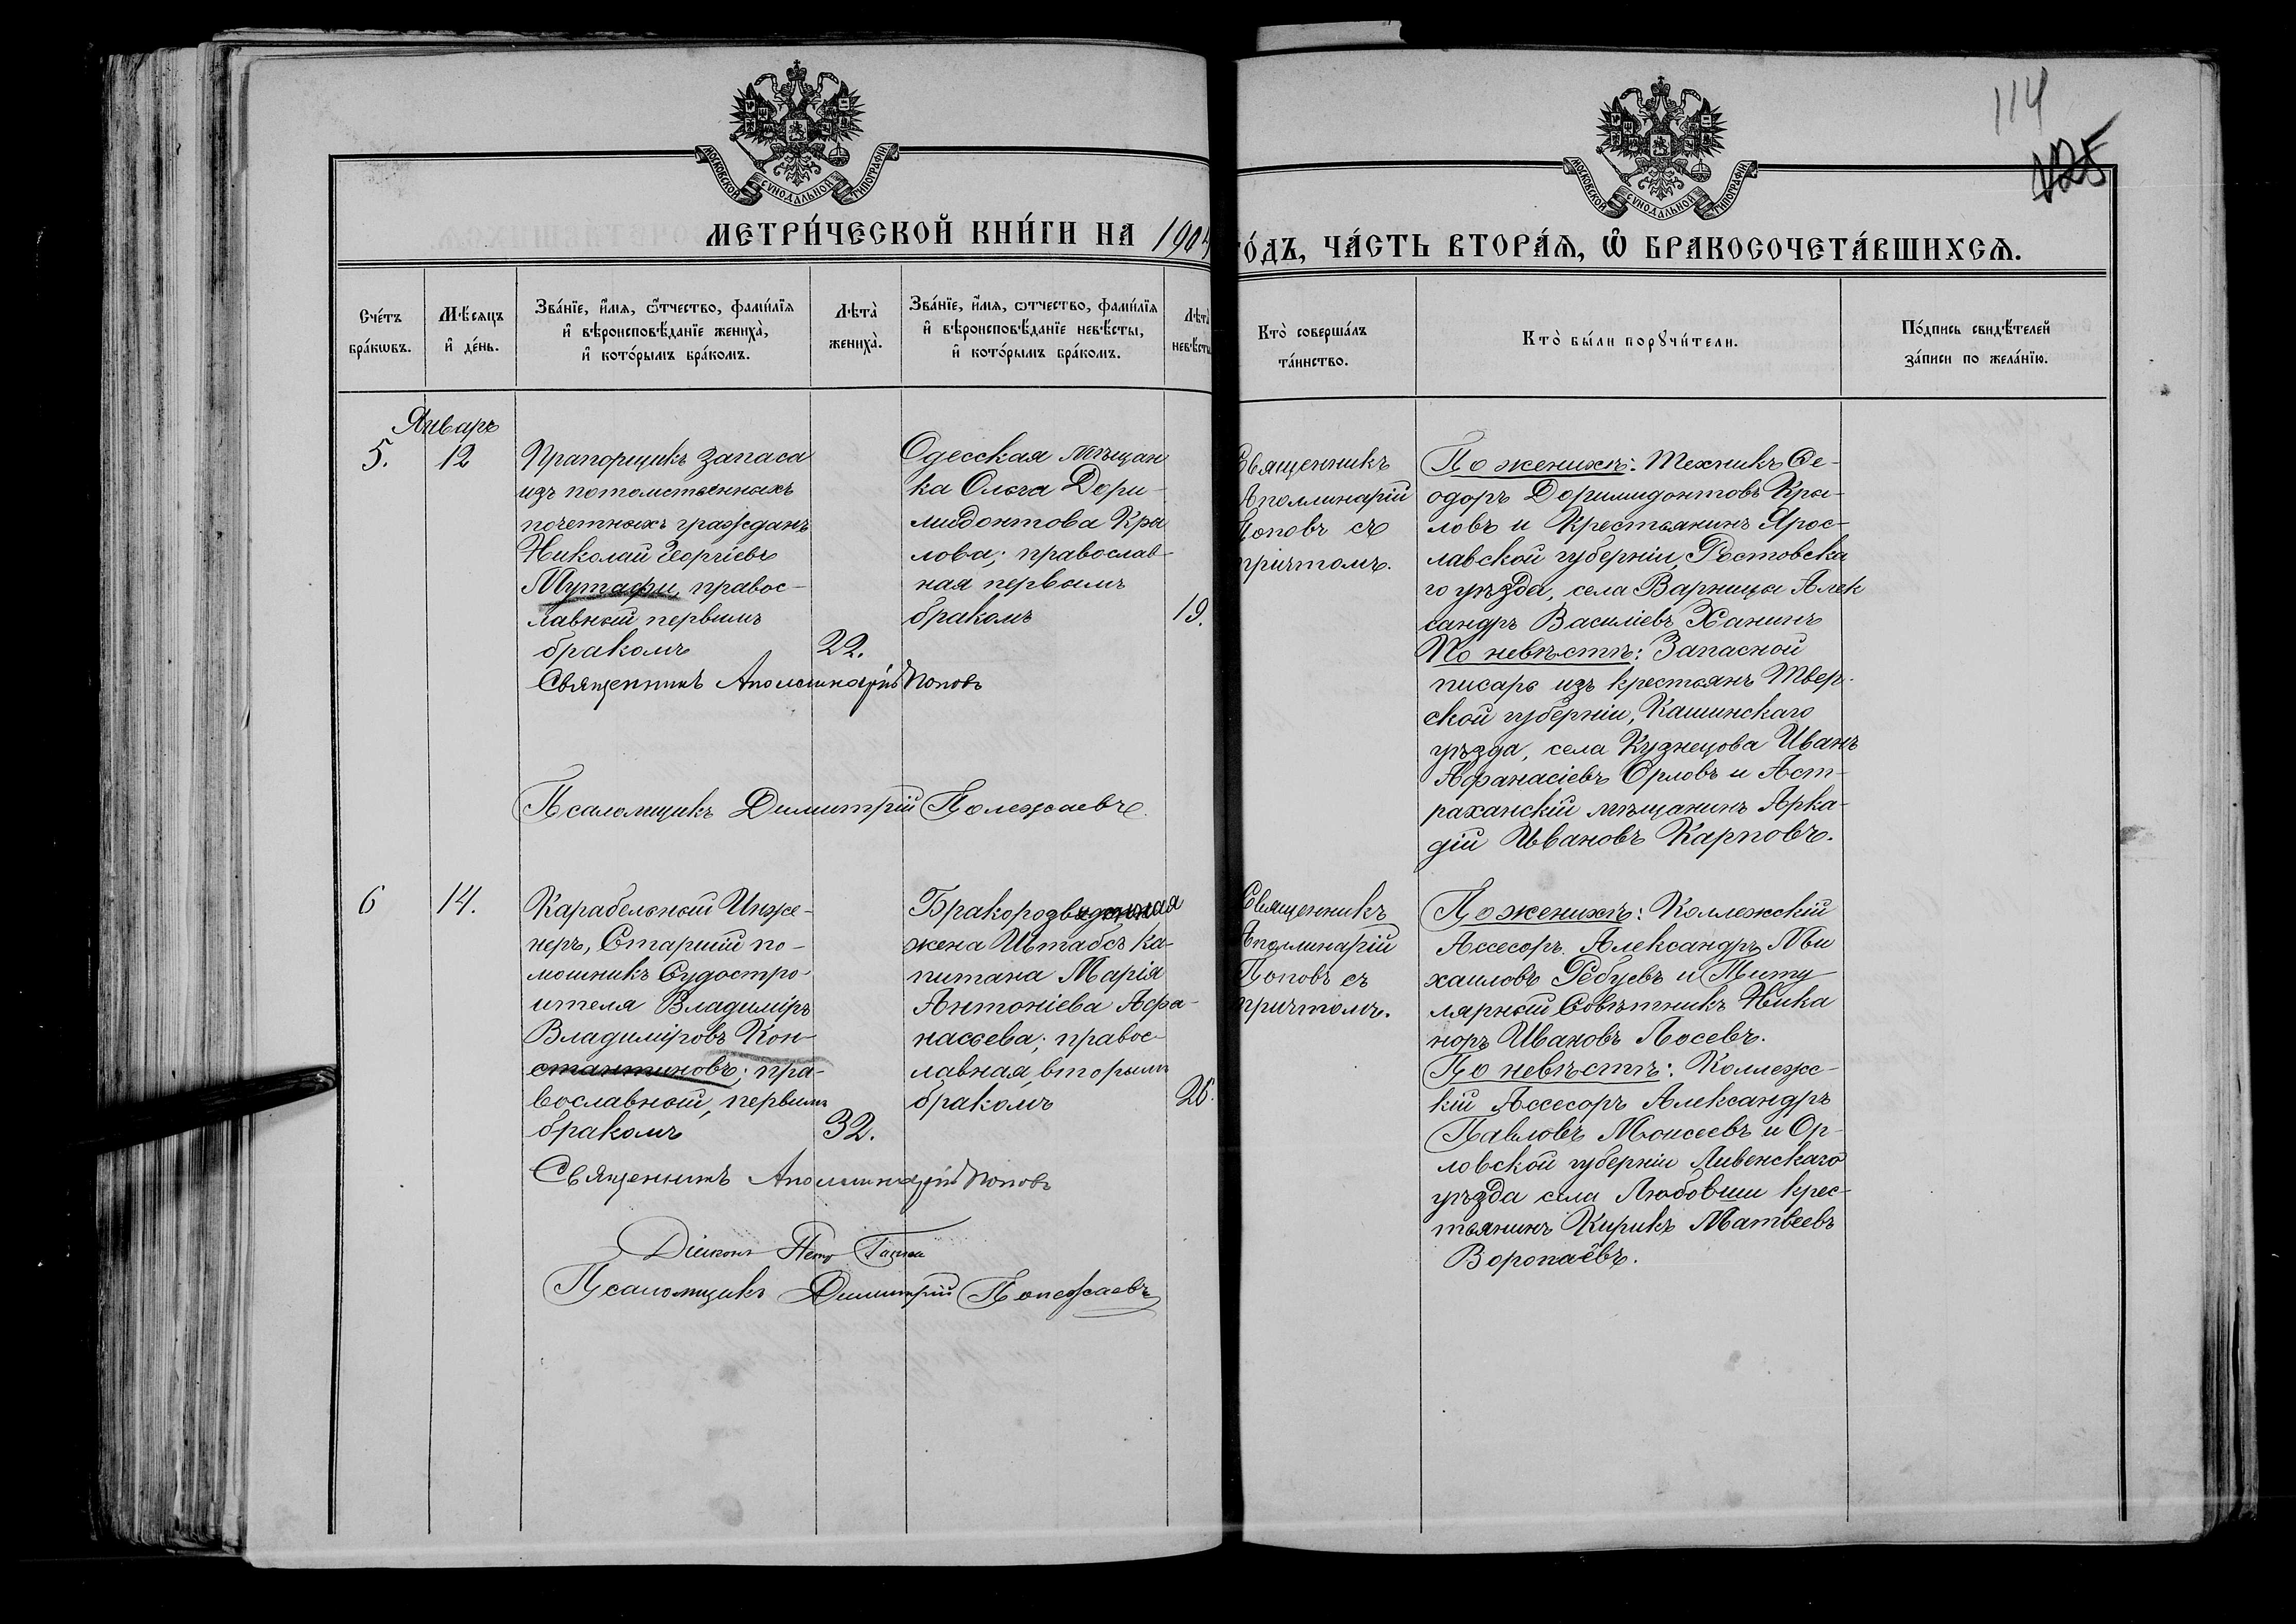 114
125
МОСКОВСКОЙ СѴНОДАЛЬНОЙ ТИПОГРАФІИ
МОСКОВСКОЙ СѴНОДАЛЬНОЙ ТИПОГРАФІИ
МЕТРИ́ЧЕСКОЙ КНИ́ГИ НА 1904
ГО́ДЪ, ЧА́СТЬ ВТОРА́Ѧ, Ѽ БРАКОСОЧЕТА́ВШИХСѦ.
Сче́тъ бра́кѡвъ.
Мѣ́сяцъ и҆ де́нь.
Зва́нїе, и҆́мѧ, ѻ҆́тчество, фами́лїѧ
и҆ вѣроисповѣ́данїе жениха̀,
и҆ кото́рымъ бра́комъ.
Лѣта̀ жениха̀.
Зва́нїе, и҆́мѧ, ѻтчество, фами́лїѧ
и҆ вѣроисповѣ́данїе невѣ́сты,
и҆ кото́рымъ бра́комъ.
Лѣта̀ невѣ́сты
Кто̀ соверша́лъ та́инство.
Кто̀ бы́ли порꙋчи́тели.
По́дпись свидѣ́телей
за́писи по жела́нїю.
Январь
5.
12
Прапорщикъ запаса
изъ потомственныхъ
почетныхъ гражданъ
Николай Георгіевъ
Мутафи, правос-
лавный первымъ
бракомъ
22.
Одесская мѣщан
ка Ольга Дори-
мидонтова Кры
лова; православ-
ная первымъ
бракомъ
19.
Священникъ
Аполлинарій
Поповъ съ
причтомъ.
По женихѣ: Техникъ Ѳе-
одоръ Доримидонтовъ Кры-
ловъ и Крестьянинъ Ярос-
лавской губерніи, Ростовска
го уѣзда, села Варницы Алек
сандръ Василіевъ Ханинъ
По невѣстѣ: Запасной
писарь изъ крестьянъ Твер-
ской губерніи, Кашинскаго
уѣзда, села Кузнецова Иванъ
Афанасіевъ Орловъ и Аст-
раханскій мѣщанинъ Арка-
дій Ивановъ Карповъ.
Священникъ Аполлинарій Поповъ
Псаломщикъ Димитрій Полежаевъ
6
14.
Карабельный Инже-
неръ, Старшій по-
мошникъ Судостро-
ителя Владиміръ
Владиміровъ Кон-
стантиновъ; пра-
вославный, первымъ
бракомъ
32.
Бракоразведенная
жена Штабсъ Ка-
питана Марія
Антоніева Афа-
насьева; правос-
лавная, вторымъ
бракомъ
26.
Священникъ
Аполлинарій
Поповъ съ
причтомъ.
По женихѣ: Коллежскій
Ассесоръ Александръ Ми
хаиловъ Ребуевъ и Титу
лярный Совѣтникъ Ника
норъ Ивановъ Лосевъ.
По невѣстѣ: Коллежс-
кій Ассесоръ Александръ
Павловъ Моисеевъ и Ор-
ловской губерніи Ливенскаго
уѣзда села Любовши крес-
тьянинъ Кирикъ Матвеевъ
Воропаёвъ.
Священникъ Аполлинарій Поповъ
Діаконъ Петр
Псаломщикъ Димитрій Полежаевъ